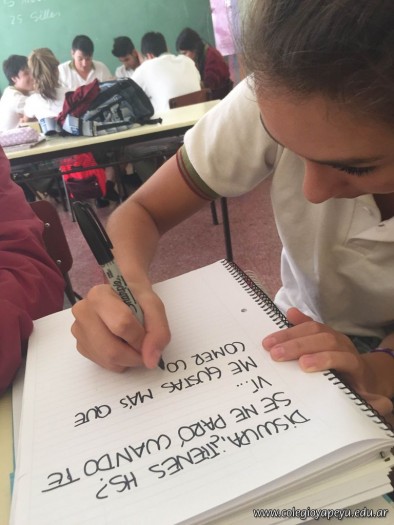 25 Sillas
DISCULPA, ¿TENES HS?
SE ME PARÓ CUANDO TE
VI...
ME GUSTAS MÁS QUE
COMER CO
www.colegioyapeyu.edu.ar